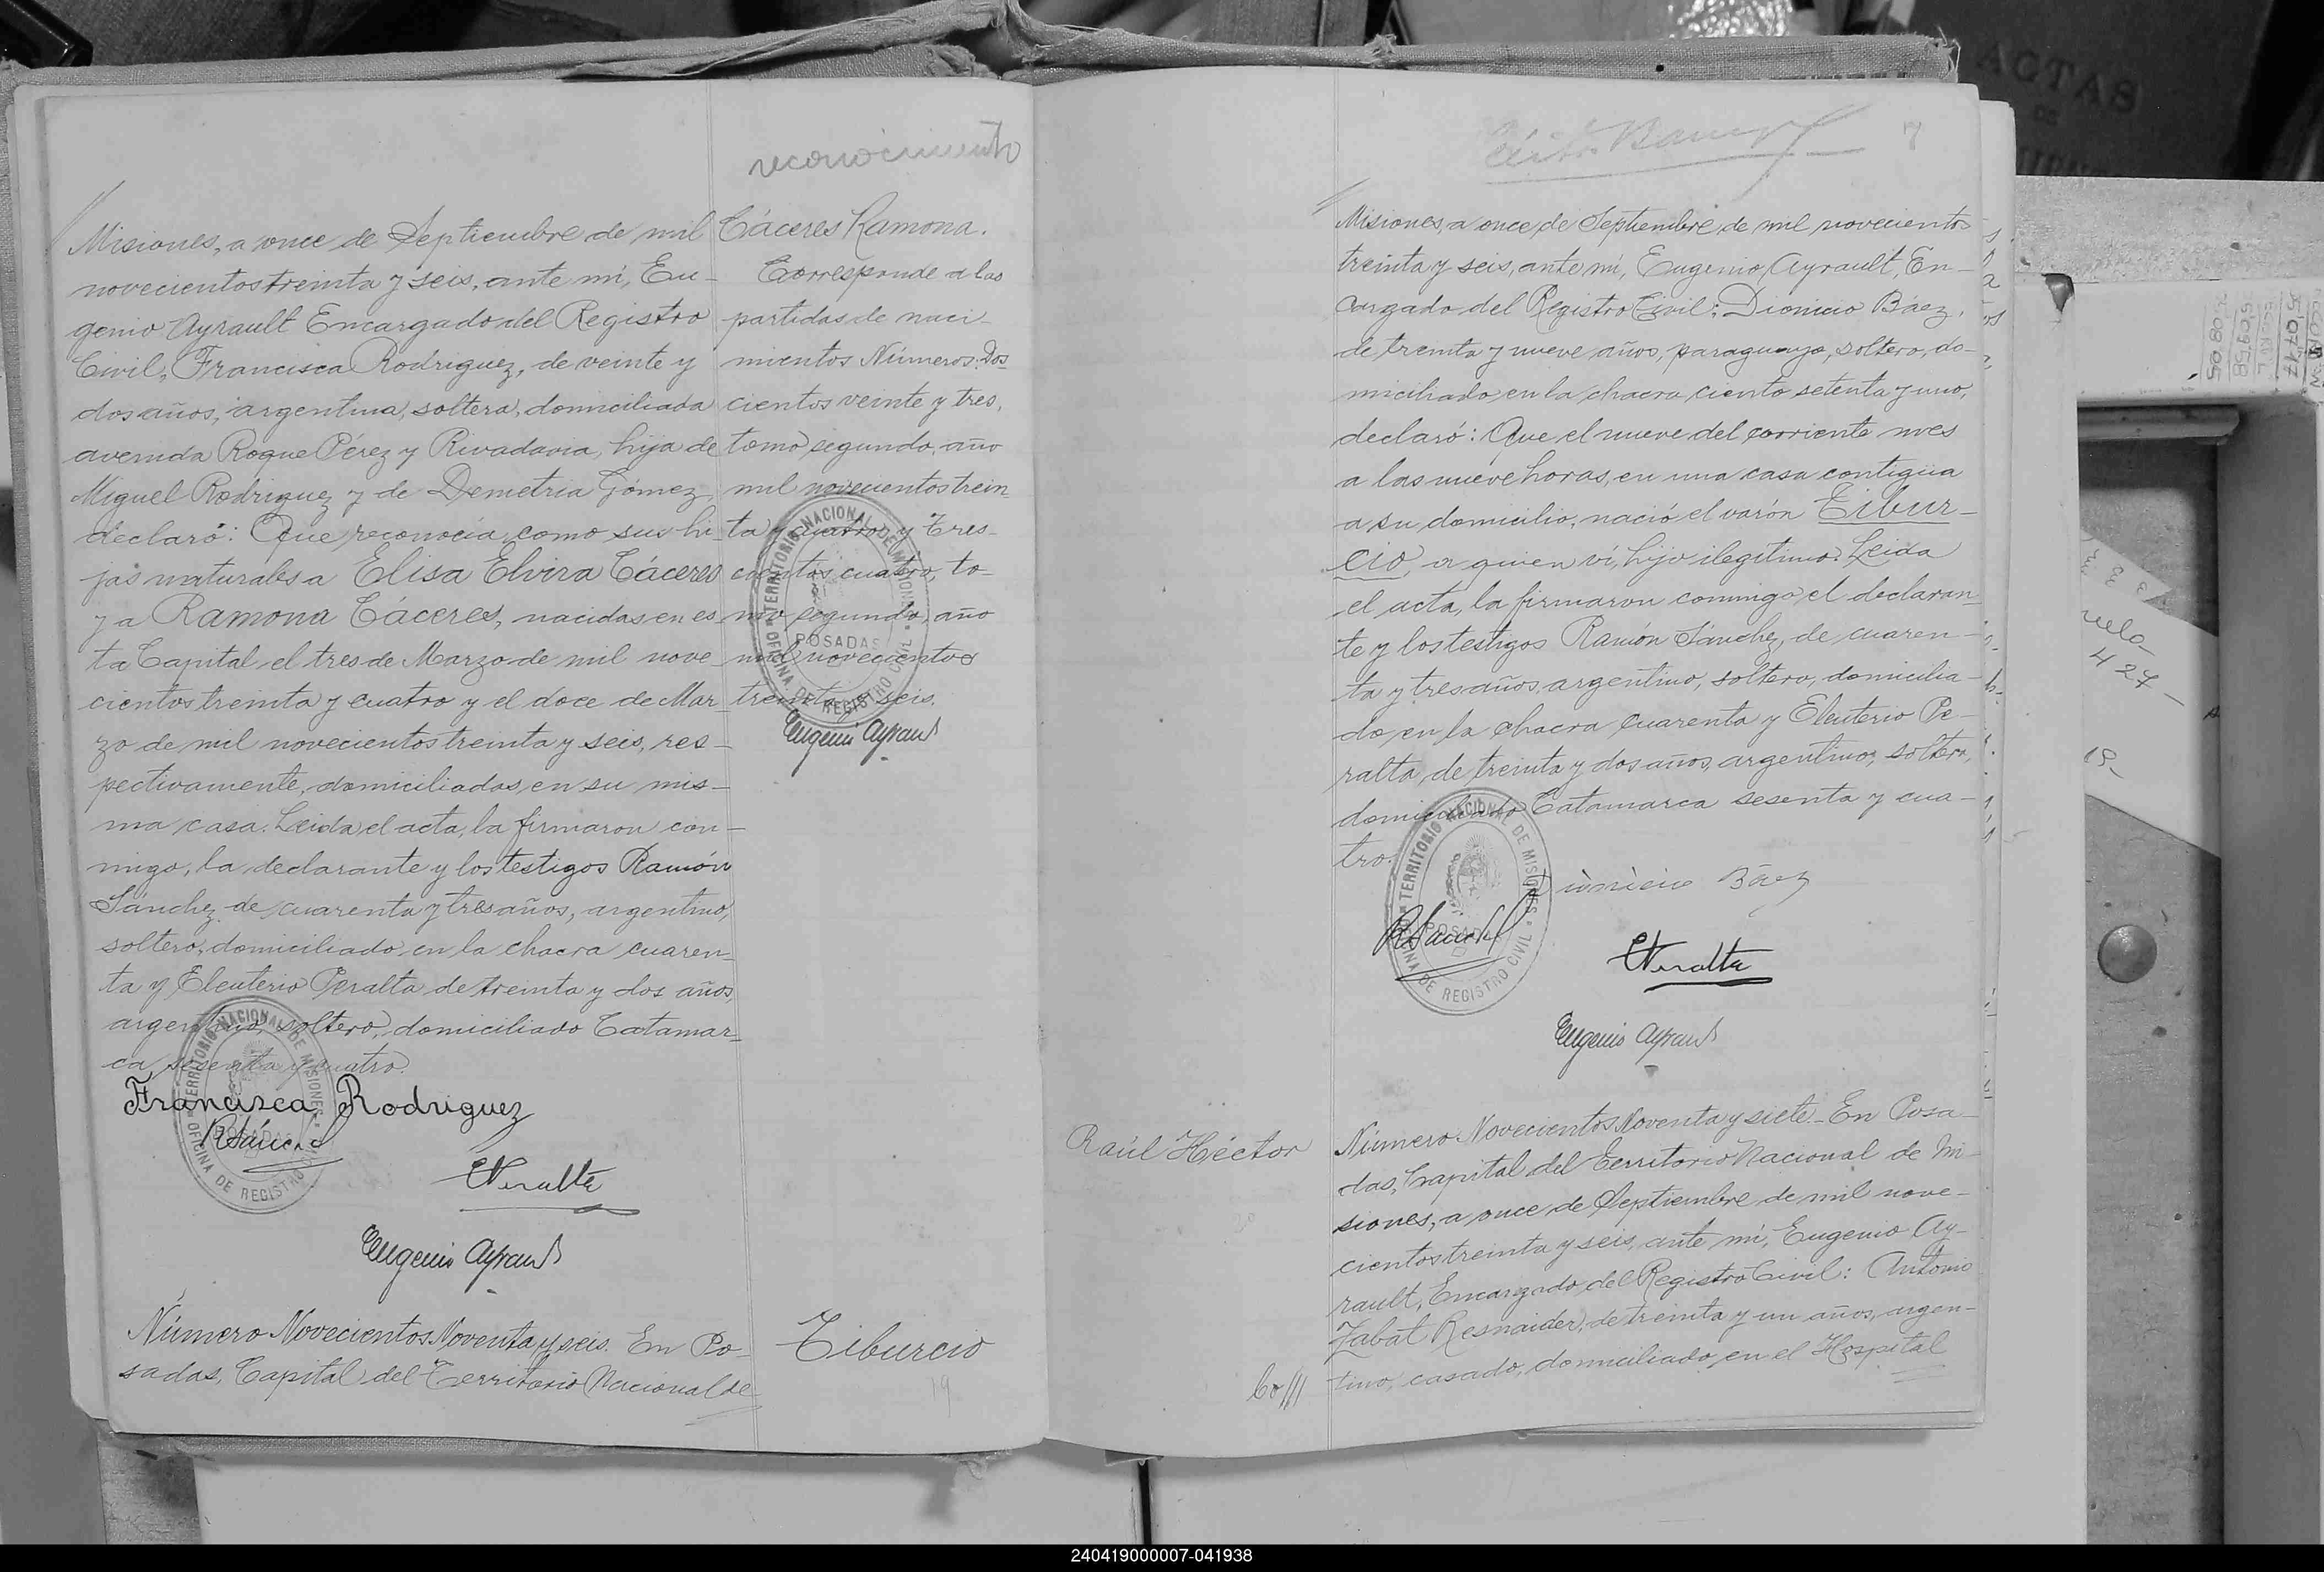 reconocimiento
Misiones, a once de Septiembre de mil
novecientos treinta y seis, ante mí, Eu-
genio Ayrault Encargado del Registro
Civil, Francisca Rodriguez, de veinte y
dos años, argentina, soltera, domiciliada
avenida Roque Pérez y Rivadavia, hija de
Miguel Rodriguez y de Demetria Gómez,
declaró: Que reconocía como sus hi-
jas naturales a Elisa Elvira Cáceres
y a Ramona Cáceres, nacidas en es-
ta Capital el tres de Marzo de mil nove-
cientos treinta y cuatro y el doce de Mar-
zo de mil novecientos treinta y seis, res-
pectivamente, domiciliadas en su mis-
ma casa. Leida el acta, la firmaron con-
migo, la declarante y los testigos Ramón
Sánchez de cuarenta y tres años, argentino,
soltero, domiciliado en la chacra cuaren-
ta y Eleuterio Peralta de treinta y dos años,
argentino, soltero, domiciliado Catamar-
ca sesenta y cuatro.
Francisca Rodriguez
RSánchez
EPeralta
Eugenio Ayrault
TERRITORIO NACIONAL DE MISIONES
POSADAS
OFICINA DE REGISTRO CIVIL
Cáceres Ramona.
Corresponde a las
partidas de naci-
mientos Números: Dos
cientos veinte y tres,
tomo segundo, año
mil novecientos trein-
ta y cuatro y Tres-
cientos cuatro, to-
mo segundo, año
mil novecientos
treinta y seis.
Eugenio Ayrault
TERRITORIO NACIONAL DE MISIONES
POSADAS
OFICINA DE REGISTRO CIVIL
Número Novecientos Noventa y seis. En Po-
sadas, Capital del Territorio Nacional de
Tiburcio
19
7
Misiones, a once de Septiembre de mil novecientos
treinta y seis, ante mí, Eugenio Ayrault, En-
cargado del Registro Civil: Dionicio Báez,
de treinta y nueve años, paraguayo, soltero, do-
miciliado en la chacra ciento setenta y uno,
declaró: Que el nueve del corriente mes
a las nueve horas, en una casa contigüa
a su domicilio, nació el varón Tibur-
cio, a quien vi, hijo ilegítimo. Leida
el acta, la firmaron conmigo el declaran-
te y los testigos Ramón Sánchez, de cuaren-
ta y tres años, argentino, soltero, domicilia-
do en la chacra cuarenta y Eleuterio Pe-
ralta, de treinta y dos años, argentino, soltero,
domiciliado Catamarca sesenta y cua-
tro.
Dionicio Báez
RSánchez
EPeralta
Eugenio Ayrault
TERRITORIO NACIONAL DE MISIONES
POSADAS
OFICINA DE REGISTRO CIVIL
Raúl Héctor
Número Novecientos Noventa y siete. En Posa-
das, Capital del Territorio Nacional de Mi-
siones, a once de Septiembre de mil nove-
cientos treinta y seis, ante mí, Eugenio Ay-
rault, Encargado del Registro Civil: Antonio
Zabat Resnaider, de treinta y un años, argen-
tino, casado, domiciliado en el Hospital
ACTAS
DE
427
240419000007-041938